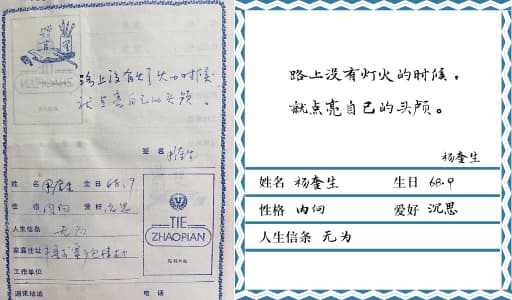 路上没有灯火的时候
就点亮自己的头颅。
签名
姓名 杨奎生 生日 68.9
性格 内向 爱好 沉思
人生信条 无为
家庭住址
工作单位
通讯地址 电话
TIE
ZHAOPIAN
路上没有灯火的时候，
就点亮自已的头颅。
杨奎生
姓名 杨奎生 生日 68.9
性格 内向 爱好 沉思
人生信条 无为